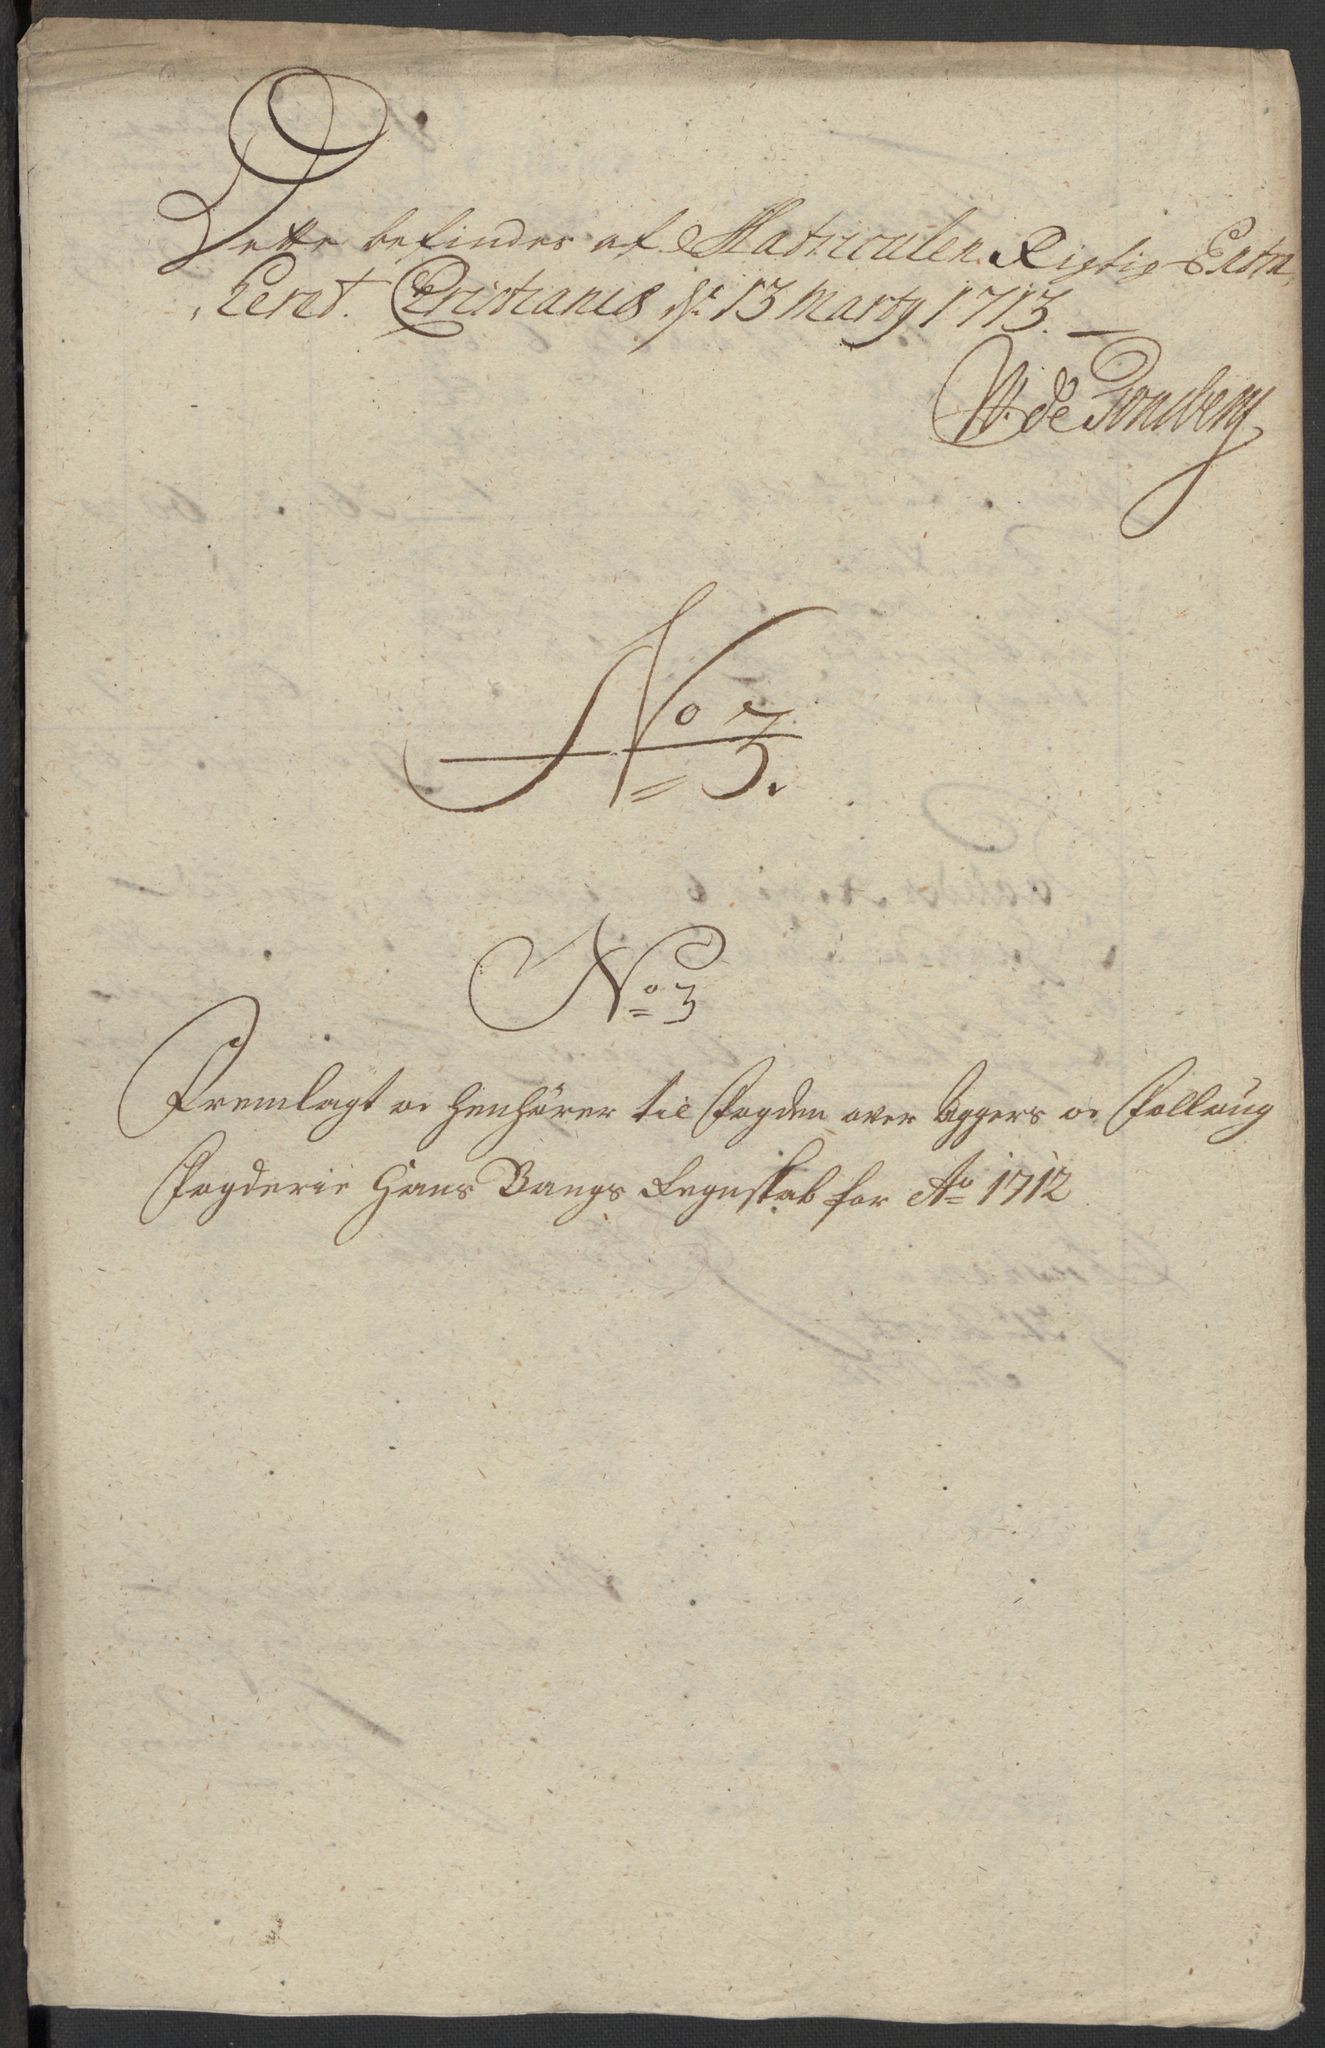 Dette befindes af Matriculen Rigtig Extra,
,heret. Christiania d: 13 Marty 1713.
W. de Tonsberg
No 3.
No 3
Fremlagt oc henhörer til Fogden over Aggers oc Folloug
Fogderie Hans Bangs Regnskab for Ao 1712